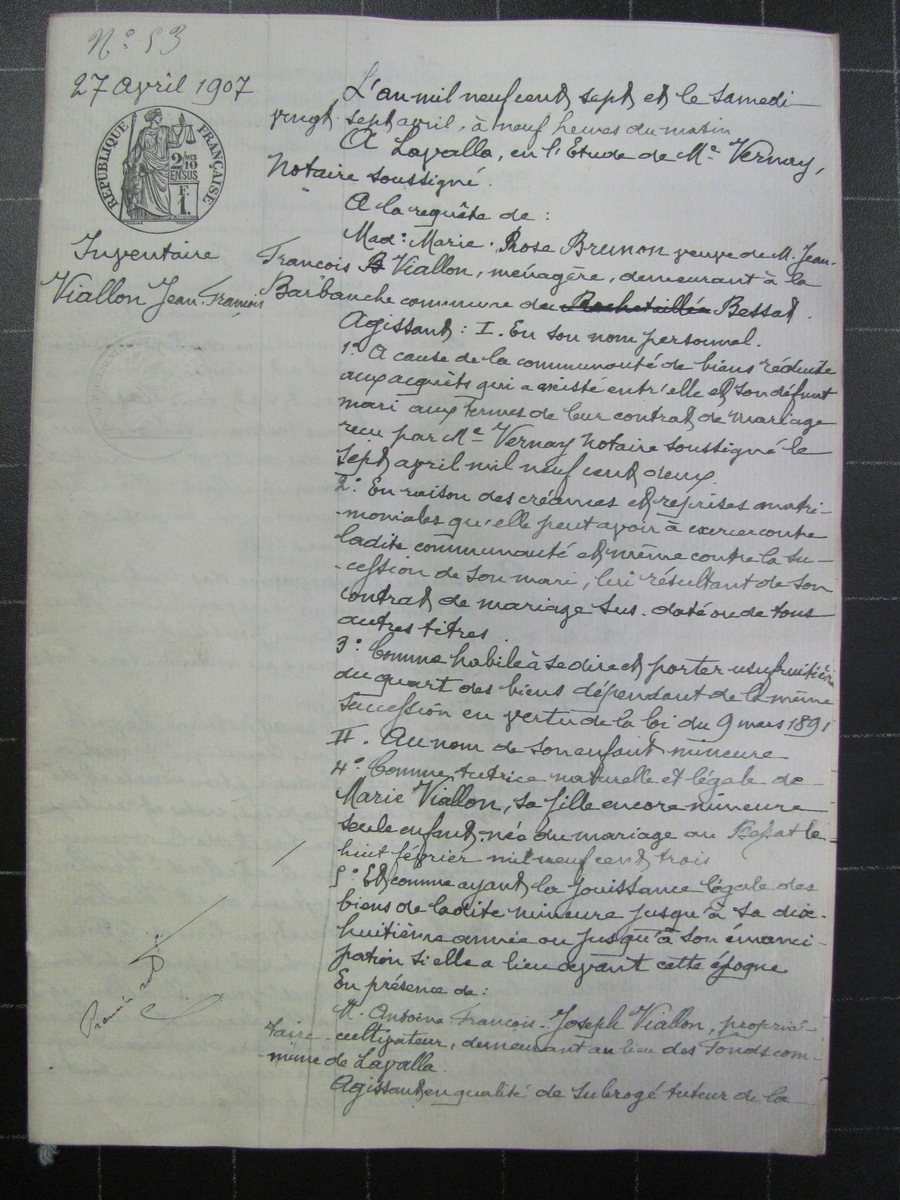 N° 53
27 avril 1907
RÉPUBLIQUE FRANÇAISE
2/10
EN SUS
F
1.
Inventaire
Viallon Jean-François
L'an mil neuf cent sept et le samedi
vingt-sept avril, à neuf heures du matin
A Lavalla, en l'Etude de Me Vernay,
Notaire soussigné.
A la requête de :
Made Marie-Rose Brunon veuve de M. Jean-
François B Viallon, ménagère, demeurant à la
Barbanche commune du Rochetaillée Bessat.
Agissant : I. En son nom personnel.
1° A cause de la communauté de biens réduite
aux acquêts qui a existé entr'elle et son défunt
mari aux termes de leur contrat de mariage
reçu par Me Vernay Notaire soussigné le
sept avril mil neuf cent deux.
2° En raison des créances et reprises matri-
-moniales qu'elle peut avoir à exercer contre
ladite communauté et même contre la su-
-cession de son mari, lui résultant de son
contrat de mariage sus-daté ou de tous
autres titres.
3° Comme habile à se dire et porter usufruitière
du quart des biens dépendant de la même
succession en vertu de la loi du 9 mars 1891
II. Au nom de son enfant mineure
4° Comme tutrice naturelle et légale de
Marie Viallon, sa fille encore mineure
seule enfant née du mariage au Bessat le
huit février mil neuf cent trois
5° Et comme ayant la jouissance légale des
biens de ladite mineure jusqu'à sa dix-
huitième année ou jusqu'à son émanci-
pation si elle a lieu avant cette époque
En présence de :
M. Antoine-François-Joseph Viallon, proprié-
taire-cultivateur, demeurant au lieu des Fonds com-
-mune de Lavalla.
Agissant en qualité de subrogé tuteur de la
Premier